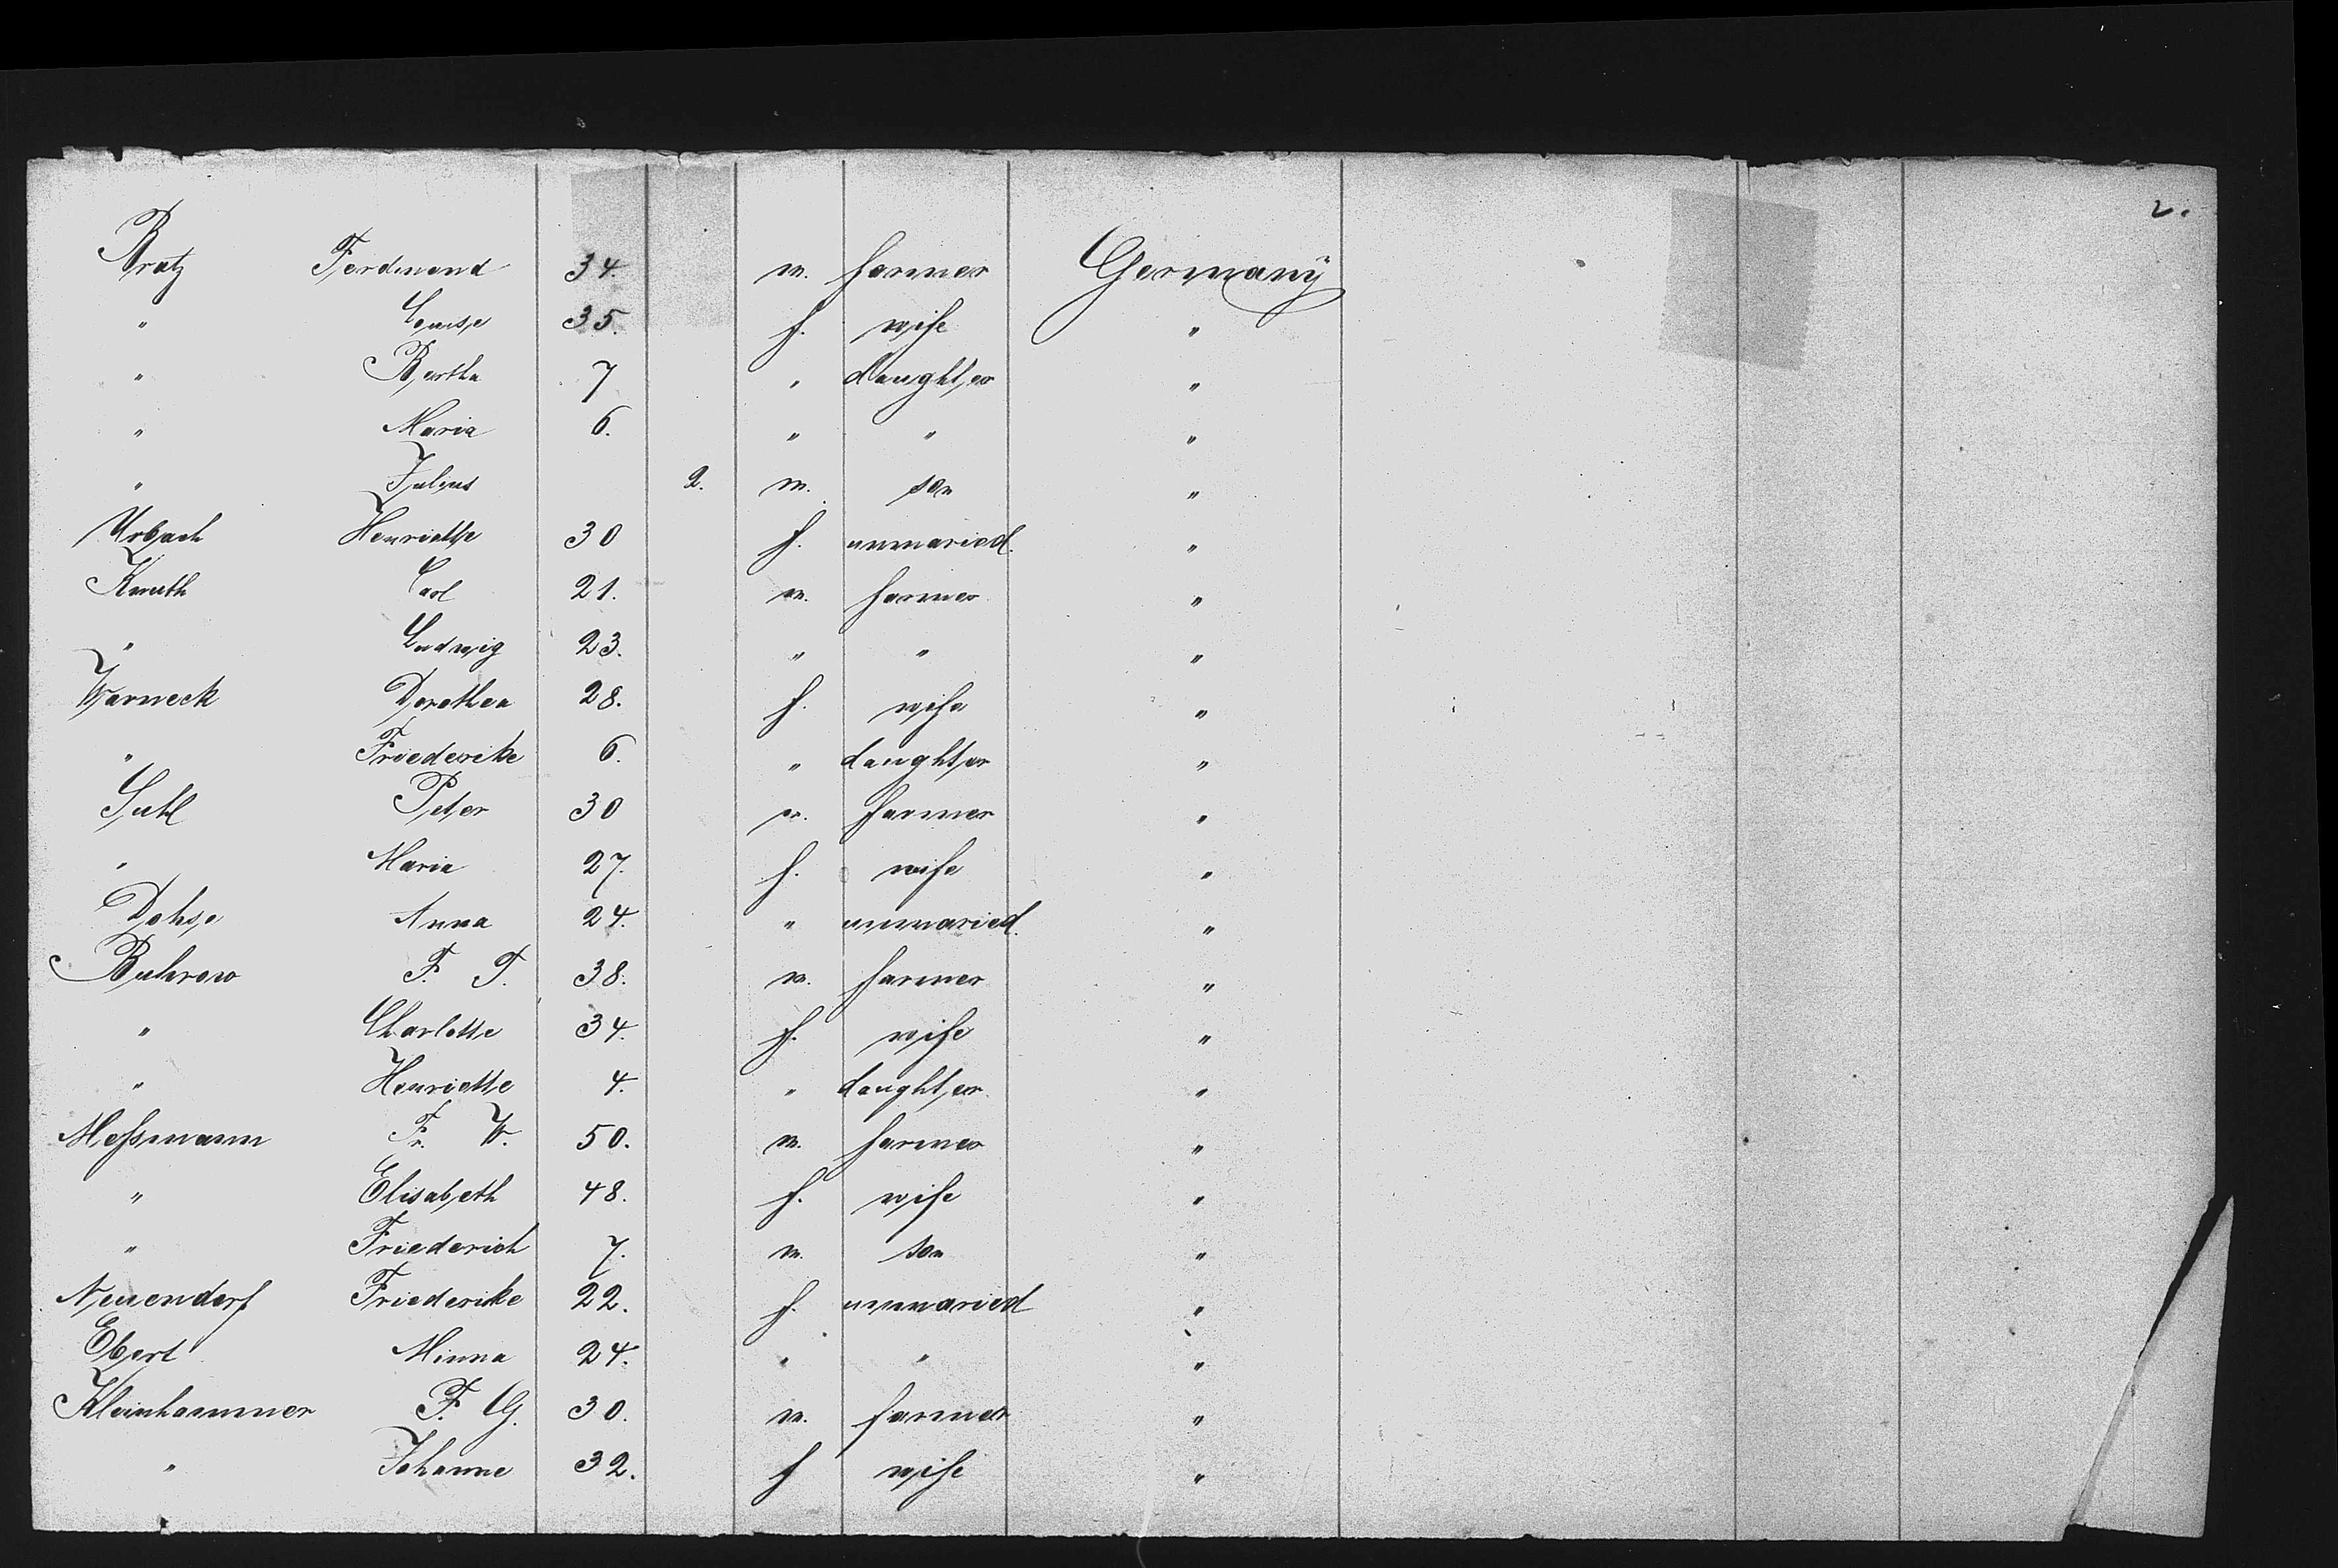 2.
Bratz Ferdinand 34. m. farmer Germany
" Louise 35. f. wife "
" Bertha 7 " daughter "
" Maria 6. " " "
" Julius 2. m. son "
Urbach Henriette 30 f. unmaried. "
Knuth Carl 21. m. farmer "
" Ludwig 23. " " "
Warneck Dorothea 28. f. wife "
" Friederike 6. " daughter "
Suhl Peter 30 m. farmer "
" Maria 27. f. wife "
Dohse Anna 24. " unmaried. "
Buhrow F. T. 38. m. farmer "
" Charlotte 34. f. wife "
" Henriette 4. " daughter "
Meßmann Fr. W. 50. m. farmer "
" Elisabeth 48. f. wife "
" Friederich 7. m. son "
Neuendorf Friederike 22. f. unmaried "
Ebert Minna 24. " " "
Kleinhammer F. G. 30. m. farmer "
" Johanne 32. f wife "